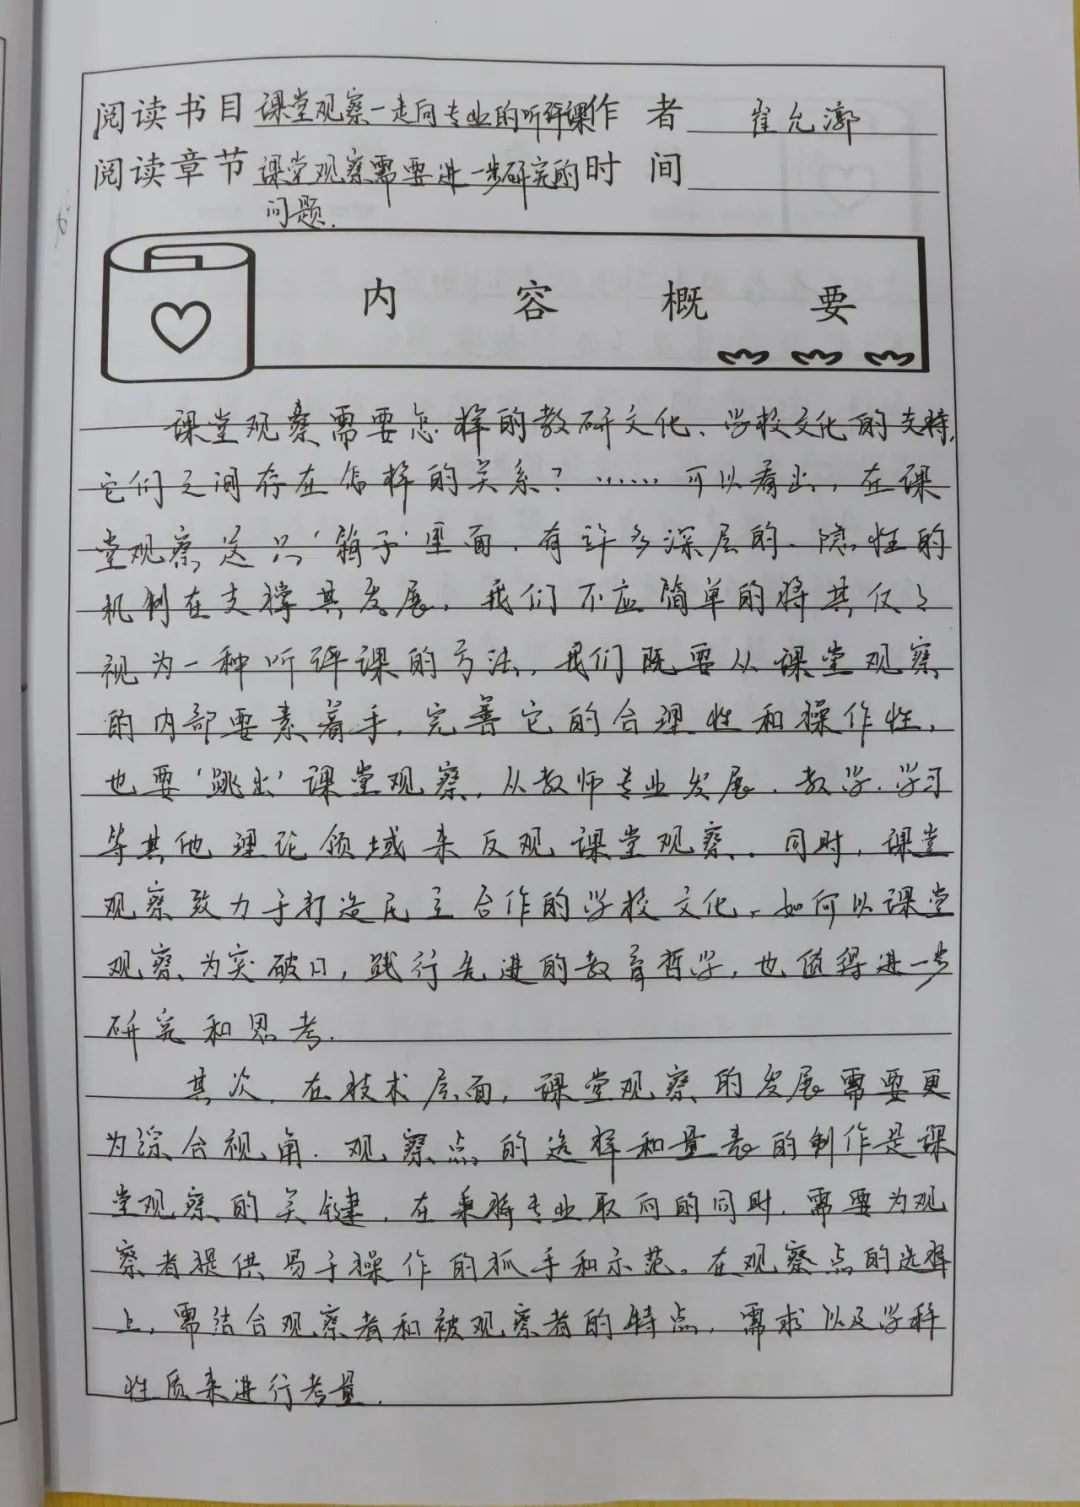 阅读书目 课堂观察—走向专业的听评课 作 者 崔允漷
阅读章节 课堂观察需要进一步研究的 时 间
问题.
内 容 概 要
课堂观察需要怎样的教研文化、学校文化的支持,
它们之间存在怎样的关系? …… 可以看出, 在课
堂观察这只'箱子'里面, 有许多深层的、隐性的
机制在支撑其发展, 我们不应简单的将其仅仅
视为一种听评课的方法, 我们既要从课堂观察
的内部要素着手, 完善它的合理性和操作性,
也要'跳出'课堂观察, 从教师专业发展、教学、学习
等其他理论领域来反观课堂观察. 同时, 课堂
观察致力于打造民主合作的学校文化, 如何以课堂
观察为突破口, 践行先进的教育哲学, 也值得进一步
研究和思考.
其次, 在技术层面, 课堂观察的发展需要更
为综合视角. 观察点的选择和量表的制作是课
堂观察的关键, 在秉持专业取向的同时, 需要为观
察者提供易于操作的抓手和示范。在观察点的选择
上, 需结合观察者和被观察者的特点, 需求以及学科
性质来进行考量.